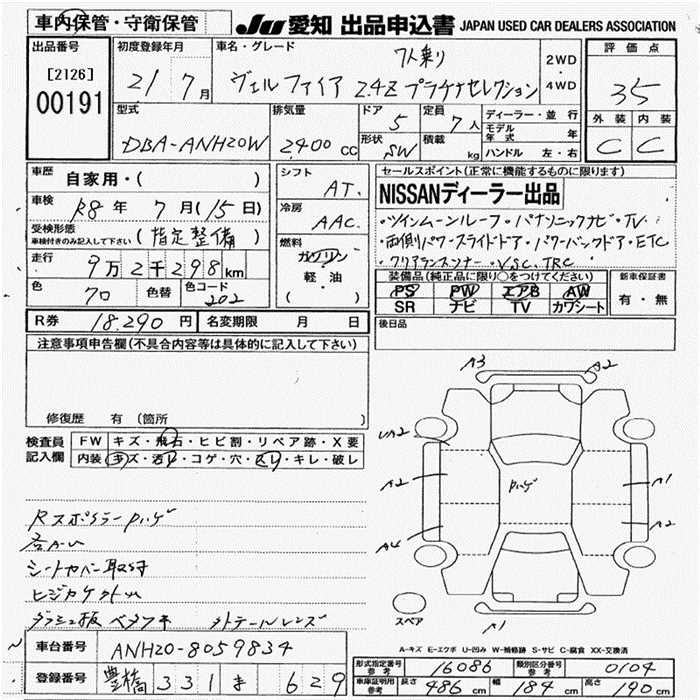 車内保管・守衛保管 JU 愛知 出品申込書 JAPAN USED CAR DEALERS ASSOCIATION
出品番号 初度登録年月 車名・グレード 7人乗り 2WD・4WD 評価点
[2126]
00191 21 7月 ヴェルファイア 2.4Z プラチナセレクション 35
型式 排気量 ドア 定員 ディーラー・並行 外装 内装
DBA-ANH20W 2400 cc 5 7人 モデル年式 年 C C
形状 SW 積載 kg ハンドル 左・右
車歴 自家用・( ) シフト AT. セールスポイント(正常に機能するものに限ります)
車検 R8年 7月(15日) 冷房 AAC. NISSANディーラー出品
受検形態 車検付きのみ記入して下さい (指定整備) ・ツインムーンルーフ・パナソニックナビ・TV.
走行 9万2千298km 燃料 ガソリン・軽・油 ( ) ・両側パワースライドドア・パワーバックドア・ETC
・クリアランスソナー・VSC.TRC
色 クロ 色替 色コード 202 装備品(純正品に限り○をつけてください) 新車保証書
PS PW エアB AW 有・無
SR ナビ TV カワシート
R券 18.290円 名変期限 月 日 後日品
注意事項申告欄(不具合内容等は具体的に記入して下さい)
修復歴 有 (箇所 )
検査員記入欄 FW キズ・飛石・ヒビ割・リペア跡・X要
内装 キズ・汚レ・コゲ・穴・スレ・キレ・破レ
A3 A2
UA2
A2 ハゲ A1
A2
A4
A1
スペア
Rスポイラーハゲ
シートカバー取付
ダッシュ板ベタツキ 外テールレンズ
A-キズ E-エクボ U-凹み W-補修跡 S-サビ C-腐食 XX-交換済
車台番号 ANH20-8059834
型式指定番号 参考 16086 類別区分番号 参考 0104
登録番号 豊橋 331 ま 629
車庫証明用 参考 長さ 486cm 幅 184cm 高さ 190cm